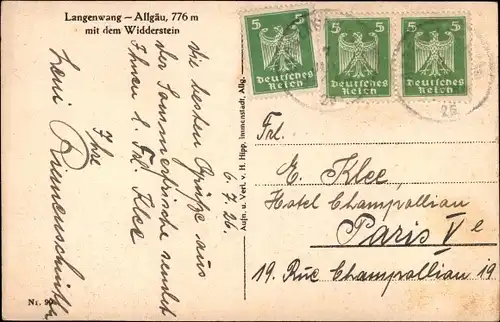 Langenwang – Allgäu, 776 m
mit dem Widderstein
5 5
Deutsches
Reich
5 5
Deutsches
Reich
5 5
Deutsches
Reich
26
6.7.26.
die besten Grüße aus
der Sommerfrische sendet
Ihnen l. Frl. Klee
Ihre
Leni
Aufn. u. Verl. v. H. Hipp, Immenstadt, Allg.
Frl.
E. Klee,
Hotel Champollian
Paris Ve
19. Rue Champollian 19
Nr.